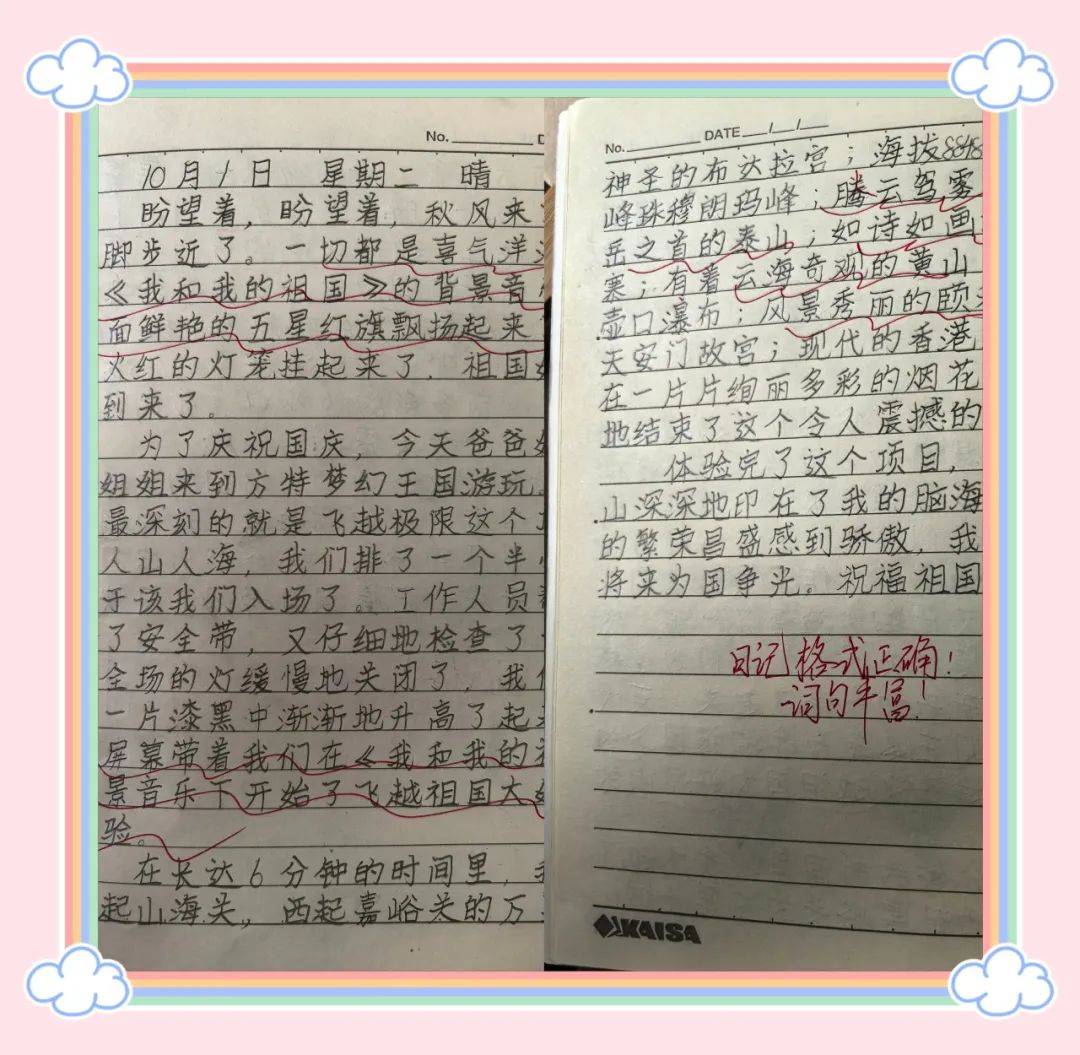 No.
10月1日 星期二 晴
盼望着，盼望着，秋风来
脚步近了。一切都是喜气洋
《我和我的祖国》的背景音
面鲜艳的五星红旗飘扬起来
火红的灯笼挂起来了，祖国
到来了。
为了庆祝国庆，今天爸爸
姐姐来到方特梦幻王国游玩
最深刻的就是飞越极限这个
人山人海，我们排了一个半
于该我们入场了。工作人员
了安全带，又仔细地检查了
全场的灯缓慢地关闭了，我
一片漆黑中渐渐地升高了起
屏幕带着我们在《我和我的
景音乐下开始了飞越祖国大
验。
在长达6分钟的时间里，
起山海关，西起嘉峪关的万
No. DATE / /
神圣的布达拉宫；海拔8848
峰珠穆朗玛峰；腾云驾雾
岳之首的泰山；如诗如画
寨；有着云海奇观的黄山
壶口瀑布；风景秀丽的颐
天安门故宫；现代的香港
在一片片绚丽多彩的烟花
地结束了这个令人震撼的
体验完了这个项目，
山深深地印在了我的脑海
的繁荣昌盛感到骄傲，我
将来为国争光。祝福祖国
日记格式正确！
词句丰富！
KAISA